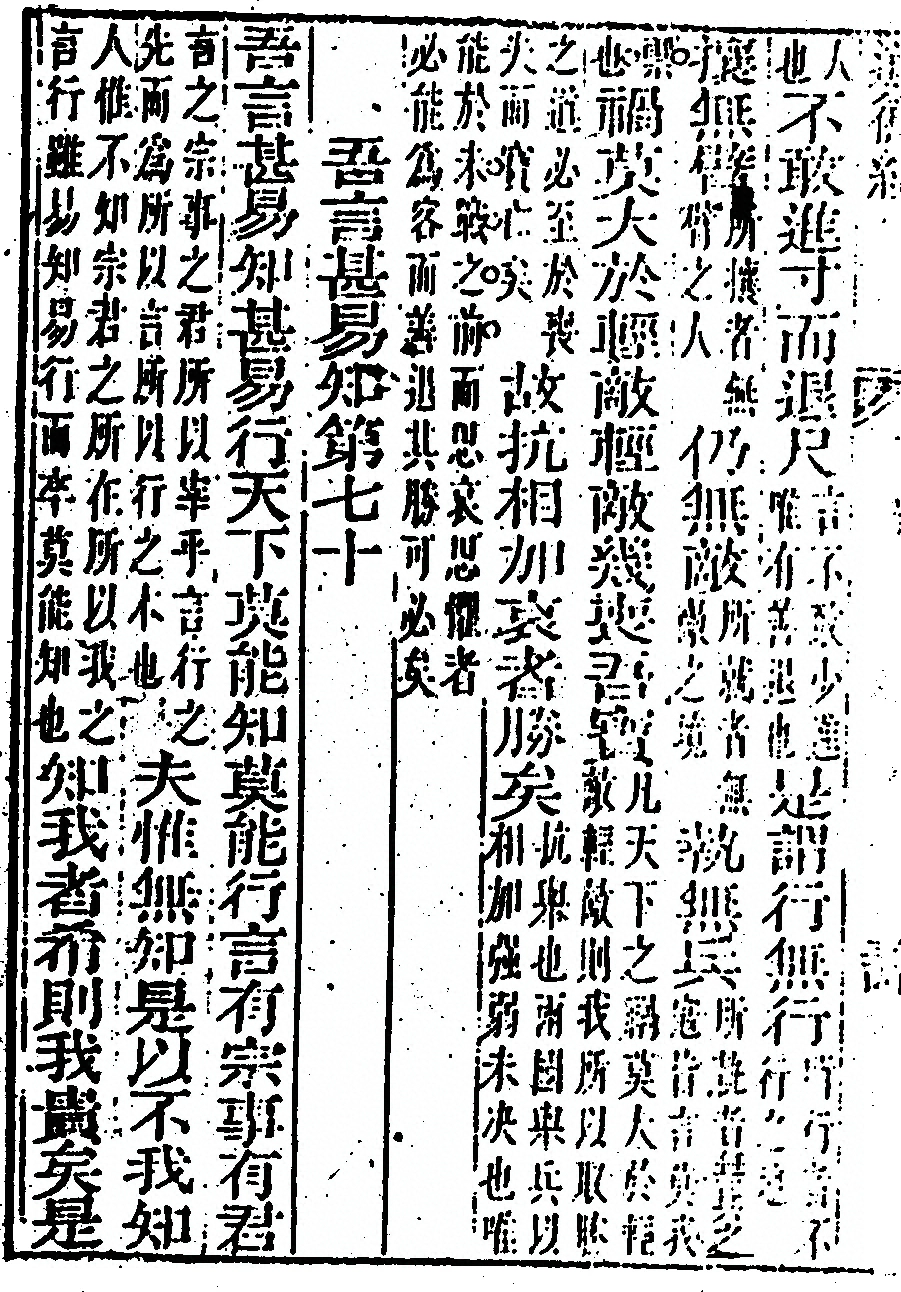 人也不敢進寸而退尺言不敢少進唯有善退也是謂行無行所行者不行之
攘無臂所攘者無臂之人仍無敵所就者無敵之境執無兵所執者皆言莫我
禦也禍莫大於輕敵輕敵幾喪吾寶凡天下之禍莫大於輕敵輕敵則我所以取勝
之道必至於喪失而寶亡矣故抗相加哀者勝矣抗舉也兩國舉兵以相加强弱未决也唯
能於未戰之前而思哀思懼者必能為客而善退其勝可必矣
吾言甚易知第七十
吾言甚易知甚易行天下莫能知莫能行言有宗事有君
言之宗事之君所以宰乎言行之先而爲所以言所以行之本也夫惟無知是以不我知
人惟不知宗君之所在所以我之言行雖易知易行而卒莫能知也知我者希則我貴矣是